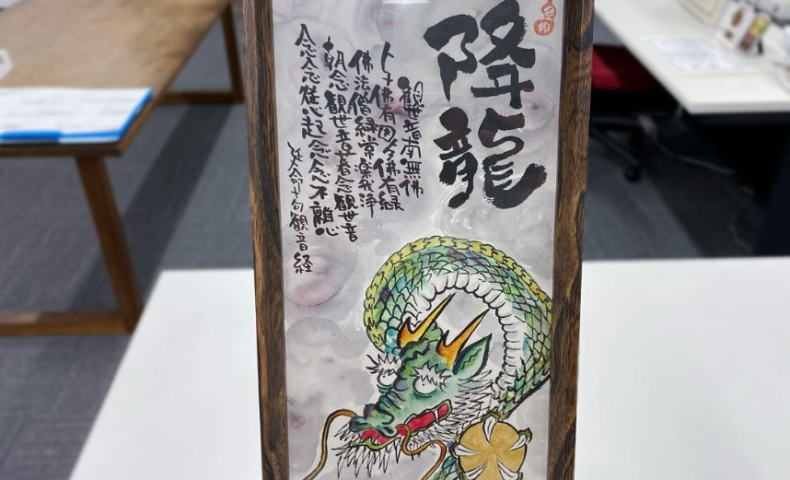 降龍
觀世音南無佛
与佛有因与佛有縁
佛法僧縁常楽我浄
朝念觀世音暮念觀世音
念念従心起念念不離心
延命十句觀音経